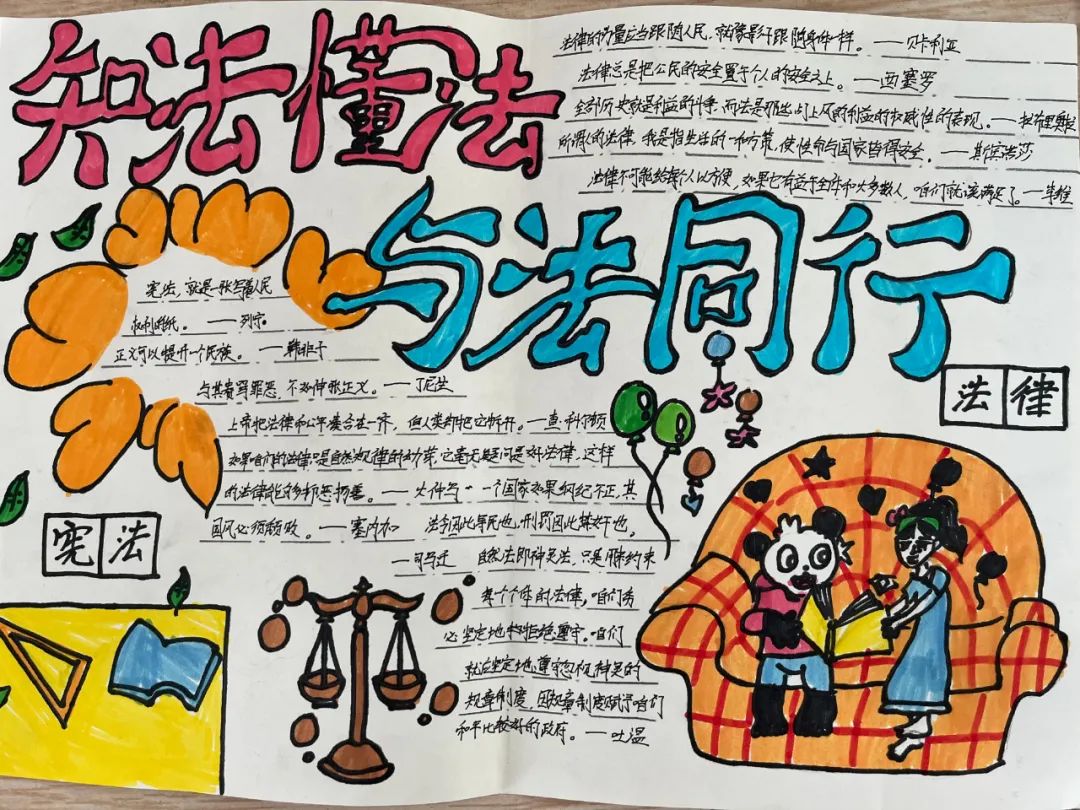 知法懂法
与法同行
法律的力量应当跟随人民，就像影子跟随身体一样。——贝卡利亚
法律总是把公民的安全置于个人的安全之上。——西塞罗
全部历史就是利益的斗争，而法是那些占上风的利益的权威性的表现。——
所谓的法律，我是指生活的一种方策，使性命与国家皆得安全。——斯宾诺莎
法律不可能给每个人以方便，如果它有益于全体和大多数人，咱们就该满足了。——李维
宪法，就是一张写着人民
权利的纸。——列宁
正义可以提升一个民族。——韩非子
与其责骂罪恶，不如伸张正义。——丁尼生
上帝把法律和公平凑合在一齐，但人类却把它拆开。——查·科尔顿
如果咱们的法律只是自然规律的，它毫无疑问是好法律，这样
的法律能够抑恶扬善。——一个国家如果纲纪不正，其
国风必须颓败。——塞内加 法令因此导民也，刑罚因此禁奸也。
——司马迁 自然法即神灵法，只是用来约束
每个个体的法律，咱们务
必坚定地拒绝遵守。咱们
就应坚定地遵守忽视神灵的
规章制度，因规章制度赋予咱们
和平比较好的政府。——吐温
法律
宪法